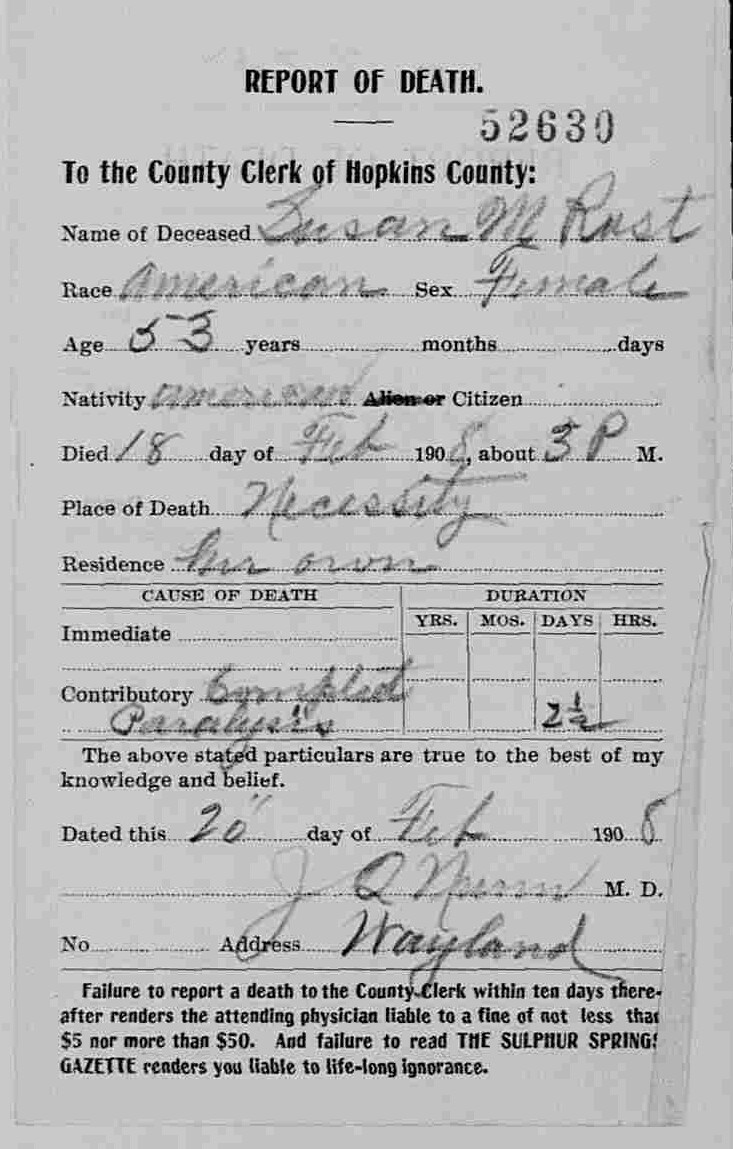 REPORT OF DEATH.
52630
To the County Clerk of Hopkins County:
Name of Deceased Susan M Rost
Race American Sex Female
Age 53 years months days
Nativity American Alien or Citizen
Died 18 day of Feb 1908, about 3 P M.
Place of Death Necessity
Residence her own
CAUSE OF DEATH DURATION
YRS. MOS. DAYS HRS.
Immediate
Contributory Complete
Paralysis 2½
The above stated particulars are true to the best of my
knowledge and belief.
Dated this 20" day of Feb 1908
J Q Nunn M. D.
No Address Wayland
Failure to report a death to the County Clerk within ten days there-
after renders the attending physician liable to a fine of not less that
$5 nor more than $50. And failure to read THE SULPHUR SPRINGS
GAZETTE renders you liable to life-long ignorance.